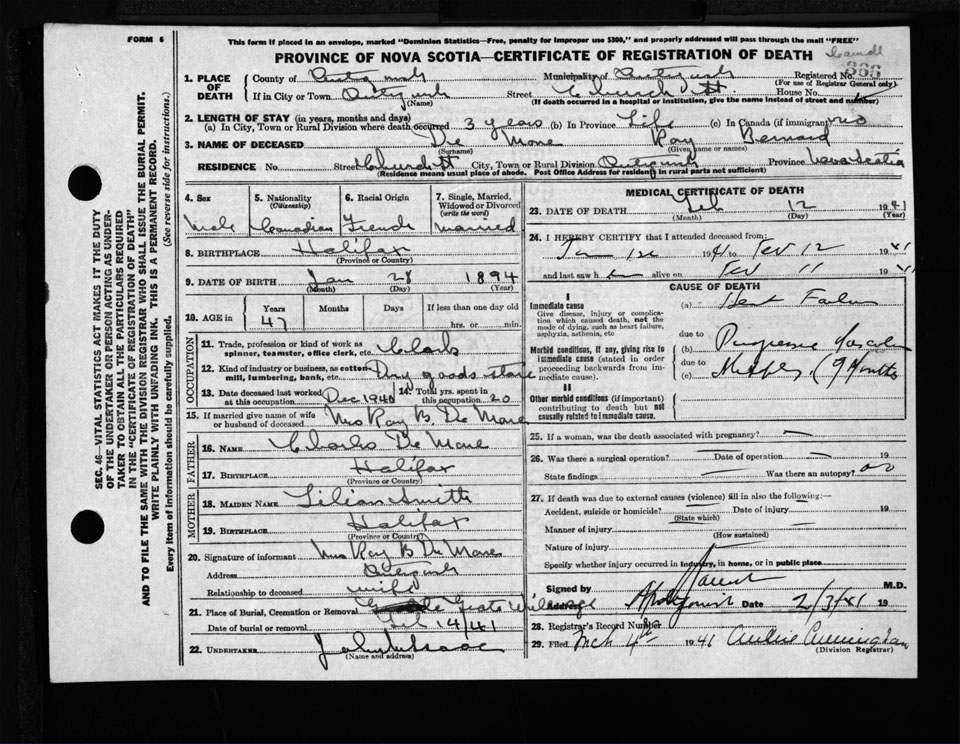 FORM 6
This form if placed in an envelope, marked "Dominion Statistics—Free, penalty for improper use $300," and properly addressed will pass through the mail "FREE"
PROVINCE OF NOVA SCOTIA—CERTIFICATE OF REGISTRATION OF DEATH
1. PLACE OF DEATH
County of
Municipality of
Registered No. 366
(For use of Registrar General only)
If in City or Town
(Name)
Street Church St.
House No.
(If death occurred in a hospital or institution, give the name instead of street and number)
2. LENGTH OF STAY (in years, months and days)
(a) In City, Town or Rural Division where death occurred 3 years (b) In Province Life (c) In Canada (if immigrant)
3. NAME OF DECEASED De Mone Ray Bernard
(Surname) (Given name or names)
RESIDENCE No. Street Church St City, Town or Rural Division Province Nova Scotia
(Residence means usual place of abode. Post Office Address for residents in rural parts not sufficient)
4. Sex
Male
5. Nationality
(Citizenship)
Canadian
6. Racial Origin
French
7. Single, Married, Widowed or Divorced
(write the word)
Married
8. BIRTHPLACE Halifax
(Province or Country)
9. DATE OF BIRTH Jan 28 1894
(Month) (Day) (Year)
10. AGE in
Years Months Days If less than one day
47
hrs. or min.
OCCUPATION
11. Trade, profession or kind of work as spinner, teamster, office clerk, etc. Clark
12. Kind of industry or business, as cotton mill, lumbering, bank, etc. Dry goods store
13. Date deceased last worked at this occupation Dec 1940
14. Total yrs. spent in this occupation 20
15. If married give name of wife or husband of deceased Mrs Ray B. De Mone
FATHER
16. NAME Charles De Mone
17. BIRTHPLACE Halifax
(Province or Country)
MOTHER
18. MAIDEN NAME Lilian Smith
19. BIRTHPLACE Halifax
(Province or Country)
20. Signature of informant Mrs Ray B De Mone
Address
Relationship to deceased wife
21. Place of Burial, Cremation or Removal
Date of burial or removal Feb 14/41
22. UNDERTAKER
(Name and address)
MEDICAL CERTIFICATE OF DEATH
23. DATE OF DEATH Feb 12 1941
(Month) (Day) (Year)
24. I HEREBY CERTIFY that I attended deceased from:
1941 to Feb 12 1941
and last saw h alive on Feb 11 1941
CAUSE OF DEATH
I
Immediate cause
Give disease, injury or complication which caused death, not the mode of dying, such as heart failure, asphyxia, asthenia, etc
(a)
due to
Morbid conditions, if any, giving rise to immediate cause (stated in order proceeding backwards from immediate cause).
(b)
due to
(c)
II
Other morbid conditions (if important) contributing to death but not causally related to immediate cause.
25. If a woman, was the death associated with pregnancy? —
26. Was there a surgical operation? — Date of operation — 19
State findings — Was there an autopsy? no
27. If death was due to external causes (violence) fill in also the following:—
Accident, suicide or homicide? Date of injury 19
(State which)
Manner of injury
(How sustained)
Nature of injury
Specify whether injury occurred in Industry, in home, or in public place
Signed by M.D.
Date 2/3/41 19
28. Registrar's Record Number
29. Filed Mch 4th 1941
(Division Registrar)
SEC. 46—VITAL STATISTICS ACT MAKES IT THE DUTY OF THE UNDERTAKER OR PERSON ACTING AS UNDERTAKER TO OBTAIN ALL THE PARTICULARS REQUIRED IN THE "CERTIFICATE OF REGISTRATION OF DEATH" AND TO FILE THE SAME WITH THE DIVISION REGISTRAR WHO SHALL ISSUE THE BURIAL PERMIT.
WRITE PLAINLY WITH UNFADING INK. THIS IS A PERMANENT RECORD.
Every item of information should be carefully supplied. (See reverse side for instructions.)